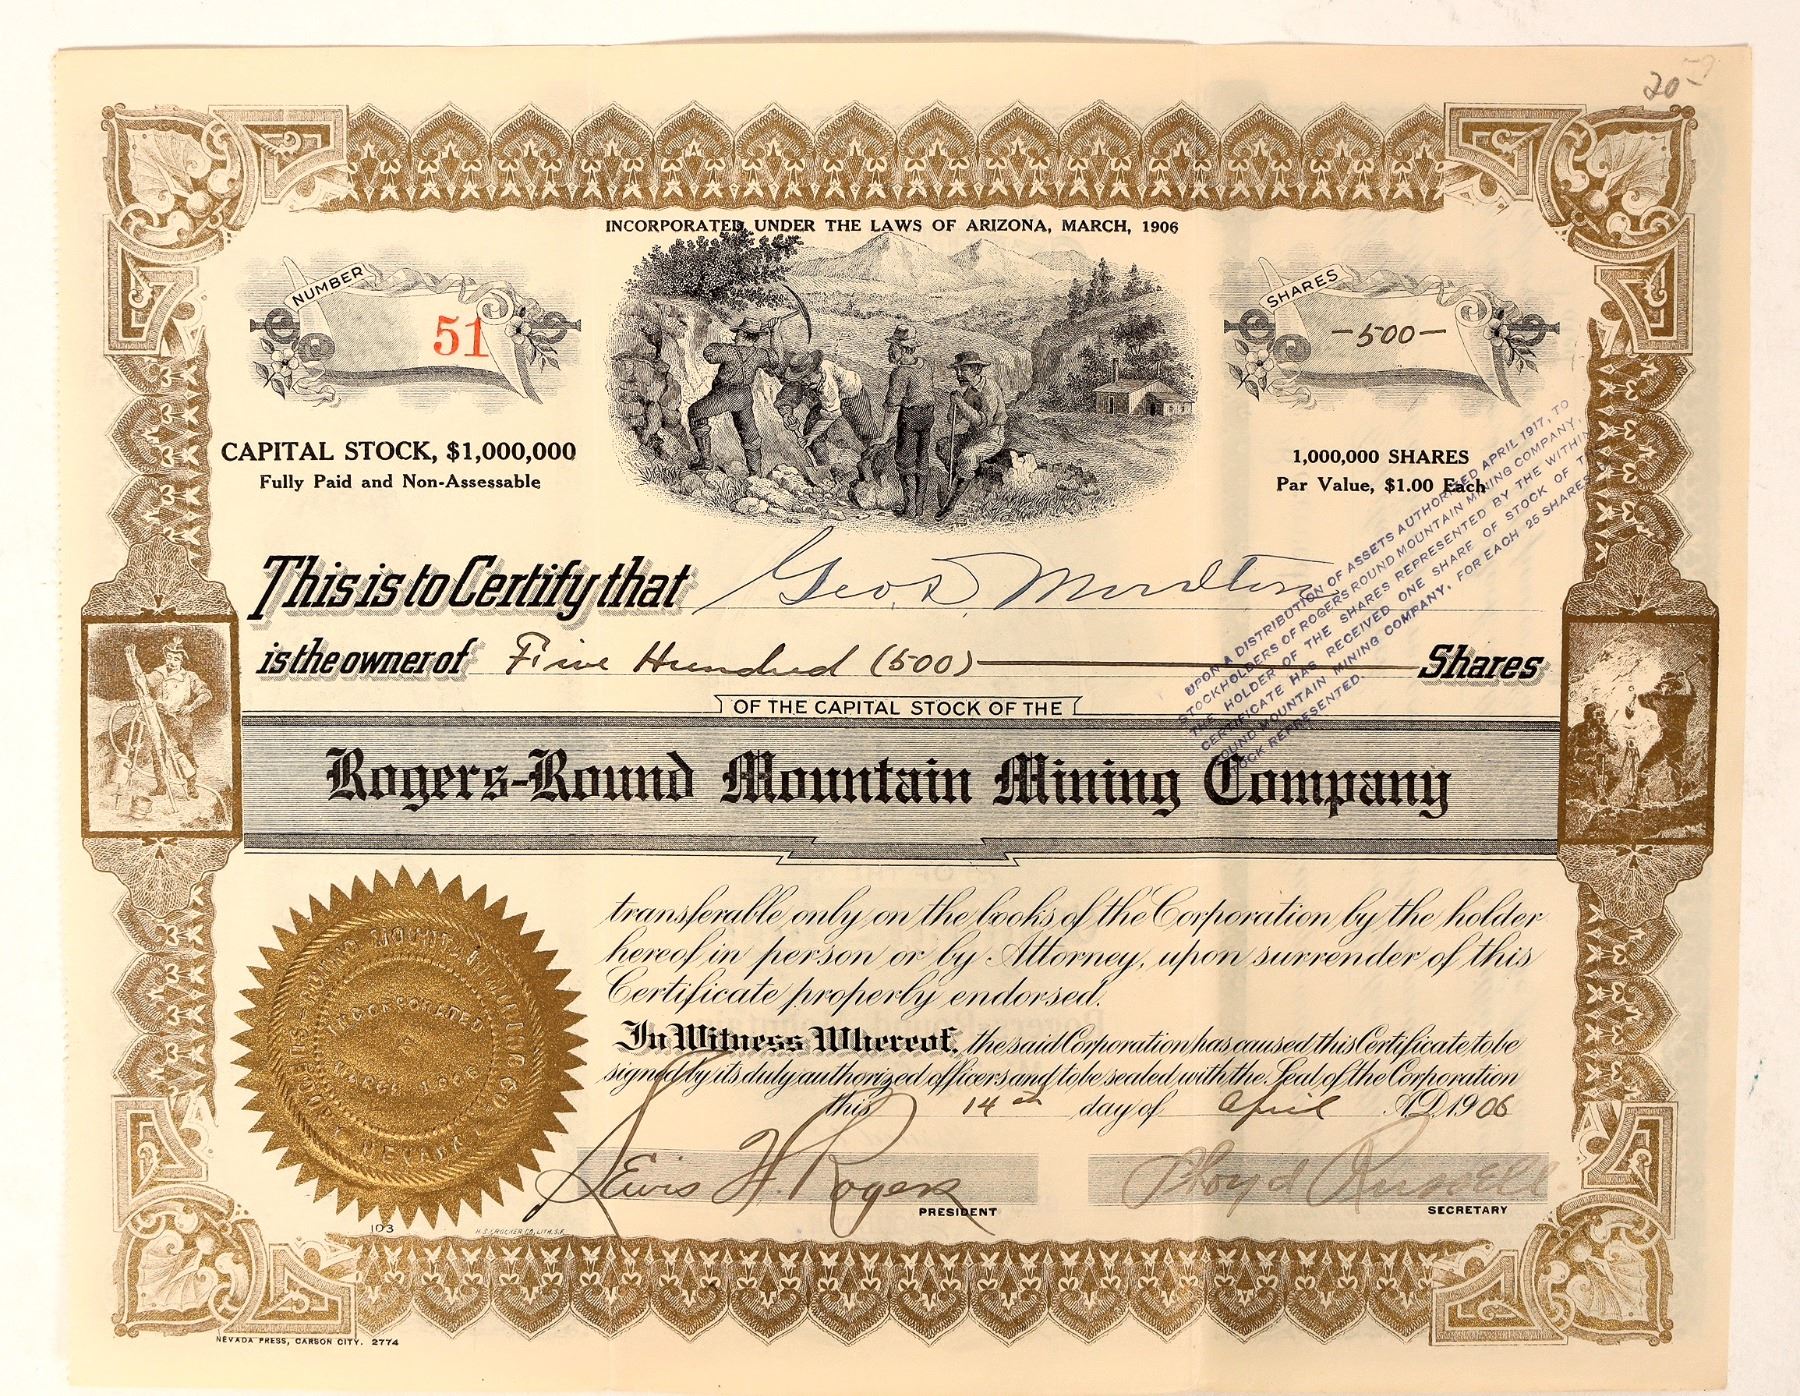 20-
INCORPORATED UNDER THE LAWS OF ARIZONA, MARCH, 1906
NUMBER
51
SHARES
-500-
CAPITAL STOCK, $1,000,000
Fully Paid and Non-Assessable
1,000,000 SHARES
Par Value, $1.00 Each
UPON A DISTRIBUTION OF ASSETS AUTHORIZED APRIL 1917, TO
STOCKHOLDERS OF ROGERS ROUND MOUNTAIN MINING COMPANY,
THE HOLDER OF THE SHARES REPRESENTED BY THE WITHIN
CERTIFICATE HAS RECEIVED ONE SHARE OF STOCK OF T
ROUND MOUNTAIN MINING COMPANY, FOR EACH 25 SHARES
STOCK REPRESENTED.
This is to Certify that Geo. D. Moulton
is the owner of Five Hundred (500) Shares
OF THE CAPITAL STOCK OF THE
Rogers-Round Mountain Mining Company
transferable only on the books of the Corporation by the holder
hereof in person or by Attorney, upon surrender of this
Certificate properly endorsed.
In Witness Whereof, the said Corporation has caused this Certificate to be
signed by its duly authorized officers and to be sealed with the Seal of the Corporation
this 14th day of April A.D. 1906
ROUND MOUNTAIN MINING CO.
INCORPORATED
MARCH 1906
NEVADA
Lewis H. Rogers
PRESIDENT
Floyd Russell
SECRETARY
103
H.S. CROCKER CO., LITH. S.F.
NEVADA PRESS, CARSON CITY. 2774